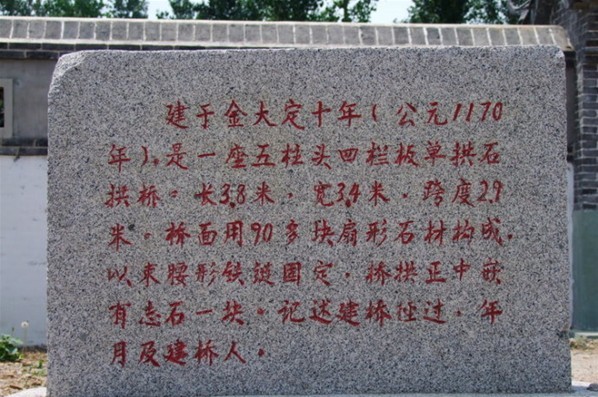 建于金大定十年(公元1170
年)。是一座五柱头四栏板单拱石
拱桥。长3.8米,宽3.4米,跨度2.9
米。桥面用90多块扇形石材构成,
以束腰形铁链固定,桥拱正中嵌
有志石一块。记述建桥经过,年
月及建桥人。